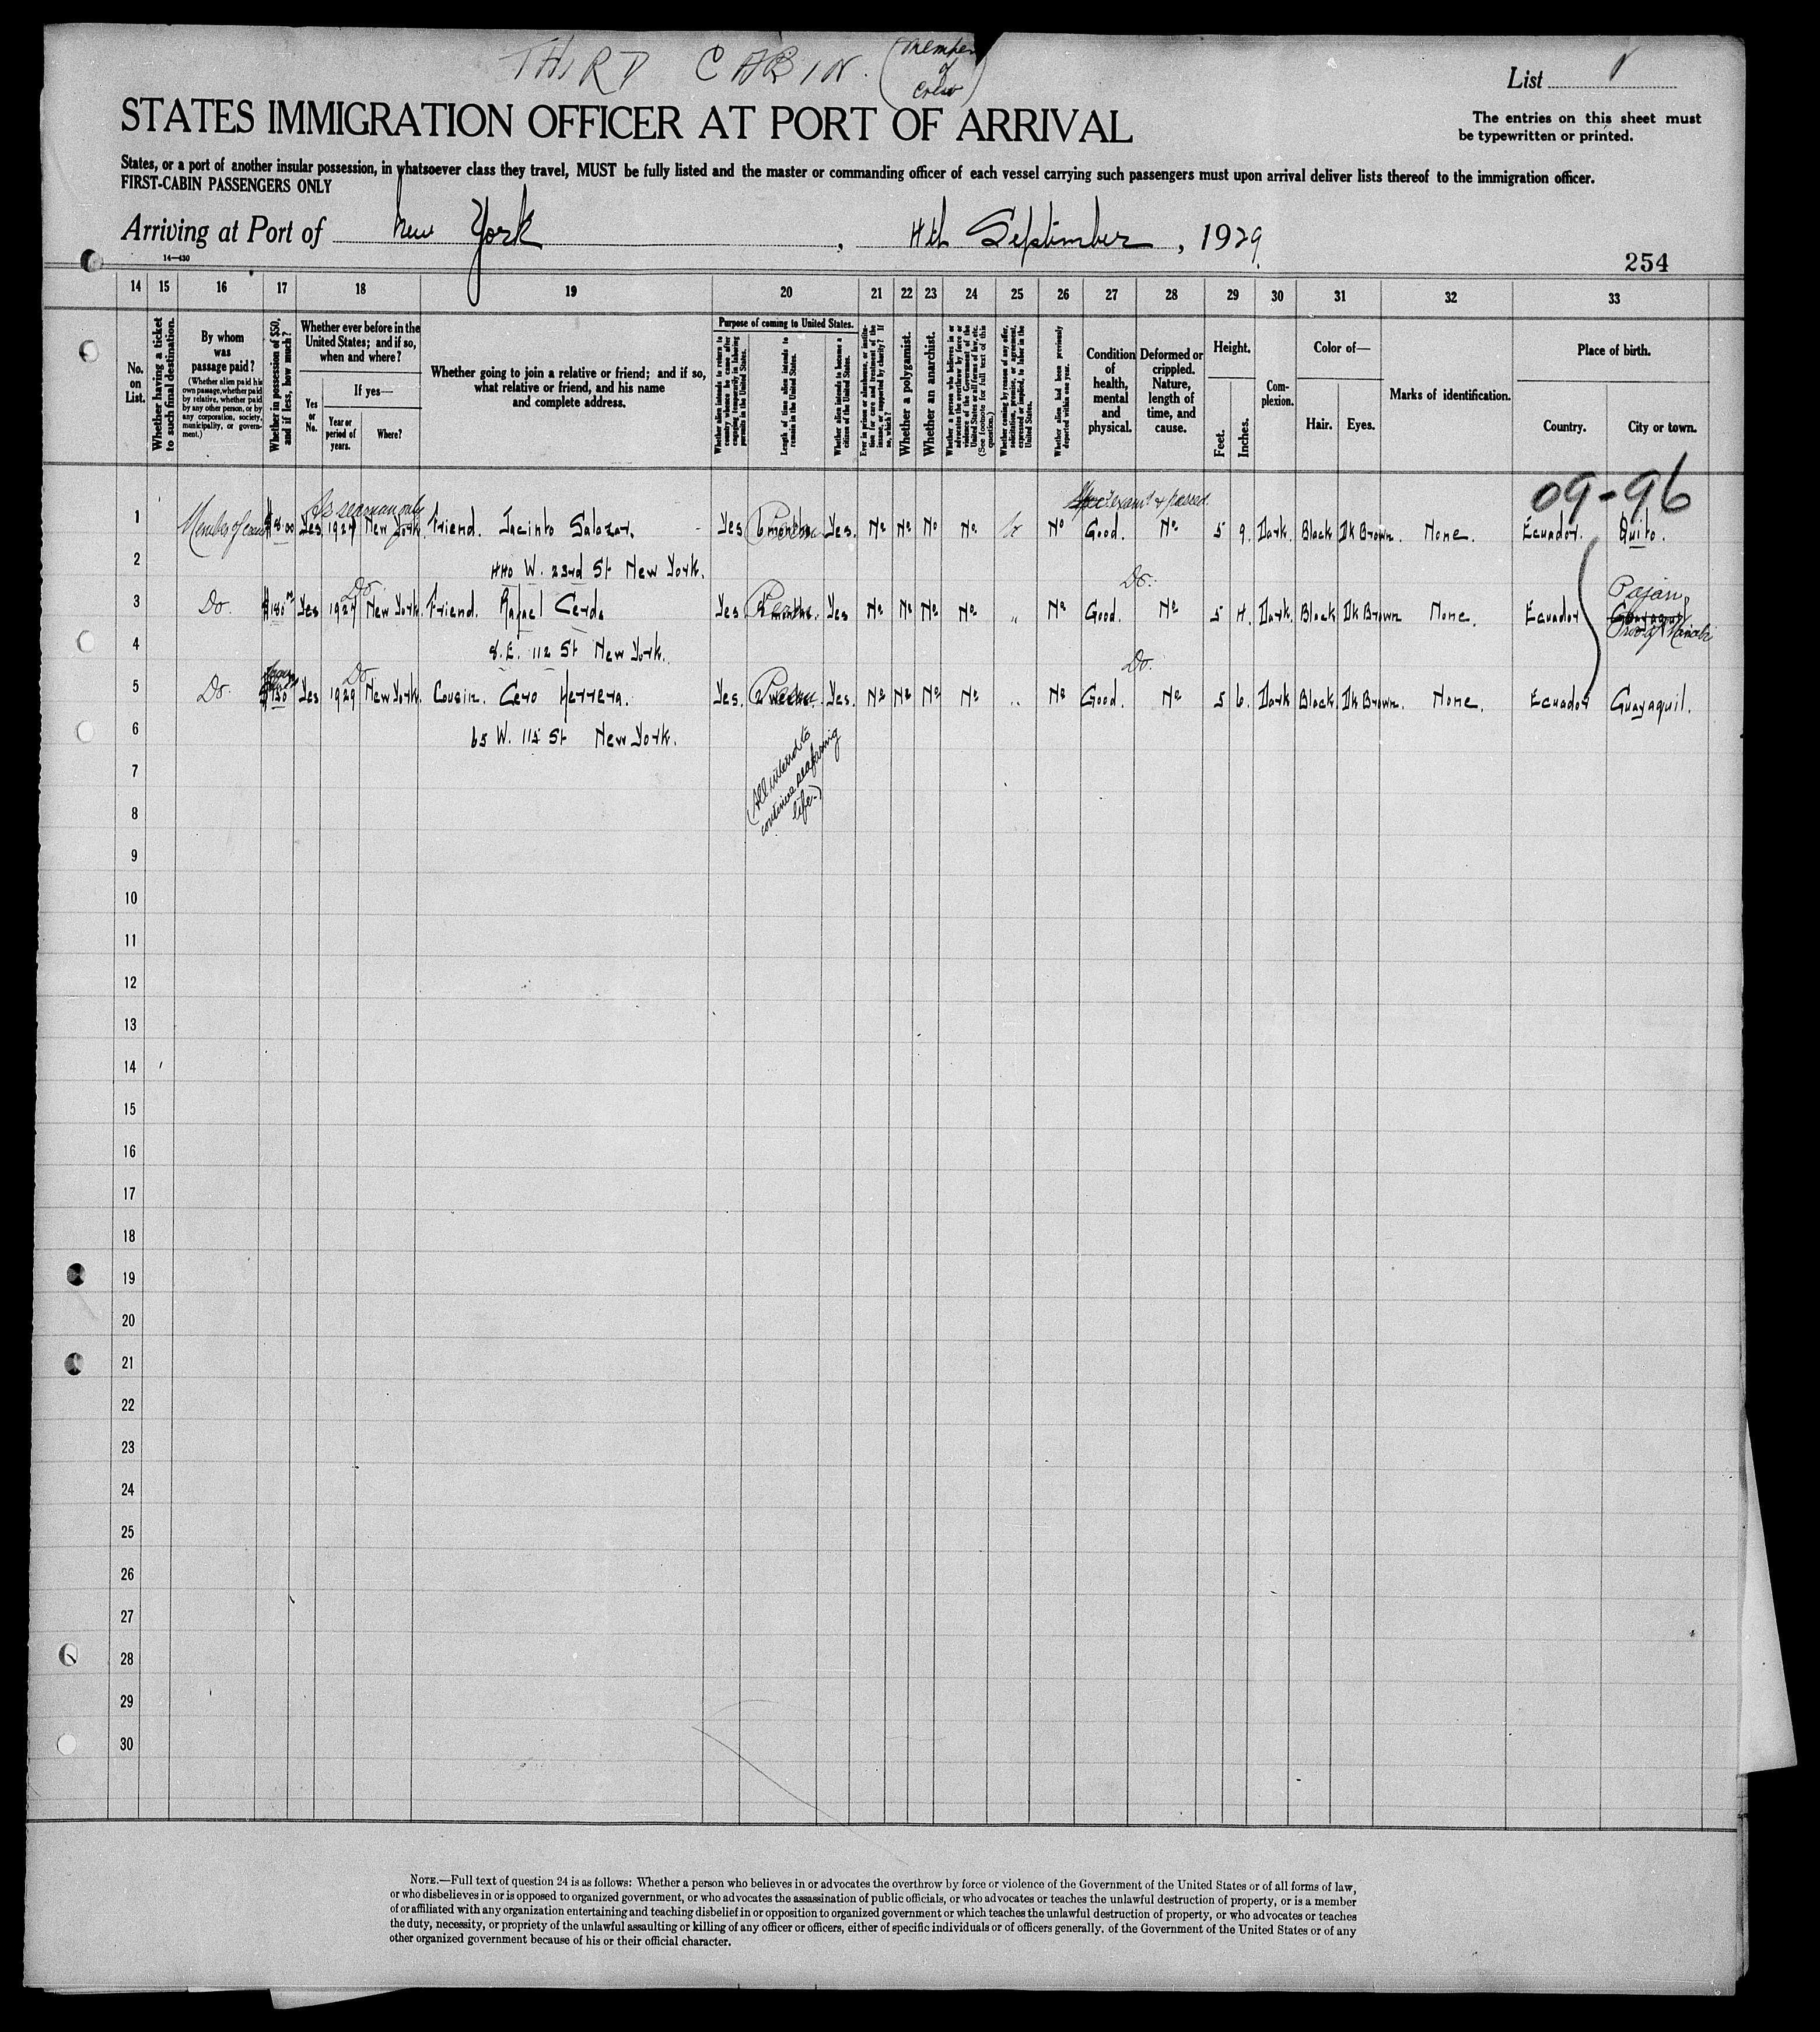 THIRD CABIN. (Member of Crew)
List
The entries on this sheet must
be typewritten or printed.
STATES IMMIGRATION OFFICER AT PORT OF ARRIVAL
States, or a port of another insular possession, in whatsoever class they travel, MUST be fully listed and the master or commanding officer of each vessel carrying such passengers must upon arrival deliver lists thereof to the immigration officer.
FIRST-CABIN PASSENGERS ONLY
Arriving at Port of New York, 4th September, 1929
14—430
254
14 15 16 17 18 19 20 21 22 23 24 25 26 27 28 29 30 31 32 33
No. on List.
Whether having a ticket to such final destination.
By whom was passage paid?
(Whether alien paid his own passage, whether paid by relative, whether paid by any other person, or by any corporation, society, municipality, or government.)
Whether in possession of $50, and if less, how much?
Whether ever before in the United States; and if so, when and where?
Yes or No.
If yes—
Year or period of years.
Where?
Whether going to join a relative or friend; and if so, what relative or friend, and his name and complete address.
Purpose of coming to United States.
Whether alien intends to return to country whence he came after engaging temporarily in laboring pursuits in the United States.
Length of time alien intends to remain in the United States.
Whether alien intends to become a citizen of the United States.
Ever in prison or almshouse, or institution for care and treatment of the insane, or supported by charity? If so, which?
Whether a polygamist.
Whether an anarchist.
Whether a person who believes in or advocates the overthrow by force or violence of the Government of the United States or all forms of law, etc. (See footnote for full text of this question.)
Whether coming by reason of any offer, solicitation, promise, or agreement, expressed or implied, to labor in the United States.
Whether alien had been previously deported within one year.
Condition of health, mental and physical.
Deformed or crippled. Nature, length of time, and cause.
Height.
Feet. Inches.
Complexion.
Color of—
Hair. Eyes.
Marks of identification.
Place of birth.
Country. City or town.
09-96
As seaman only
exam'd & passed
1 Member of crew $8.00 Yes 1927 New York. Friend. Jacinto Salazar. Yes Yes. No No No No No Good. No 5 9. Dark. Black Dk Brown. None. Ecuador. Quito.
2 440 W. 23rd St New York.
Do. Do. Pajan,
3 Do. $180 Yes 1927 New York. Friend. Rafael Cerda Yes Yes No No No No " No Good No 5 4. Dark. Black Dk Brown None. Ecuador Guayaquil
Prov of Manabi
4 8. E. 112 St New York.
Do. Do.
5 Do. $150 Yes 1929 New York. Cousin. Cero Herrera. Yes. Yes. No No No No " No Good. No 5 6. Dark Black Dk Brown. None. Ecuador Guayaquil.
6 65 W. 112 St New York.
(All intend to
continue seafaring
life.)
7
8
9
10
11
12
13
14
15
16
17
18
19
20
21
22
23
24
25
26
27
28
29
30
NOTE.—Full text of question 24 is as follows: Whether a person who believes in or advocates the overthrow by force or violence of the Government of the United States or of all forms of law,
or who disbelieves in or is opposed to organized government, or who advocates the assassination of public officials, or who advocates or teaches the unlawful destruction of property, or is a member
of or affiliated with any organization entertaining and teaching disbelief in or opposition to organized government or which teaches the unlawful destruction of property, or who advocates or teaches
the duty, necessity, or propriety of the unlawful assaulting or killing of any officer or officers, either of specific individuals or of officers generally, of the Government of the United States or of any
other organized government because of his or their official character.